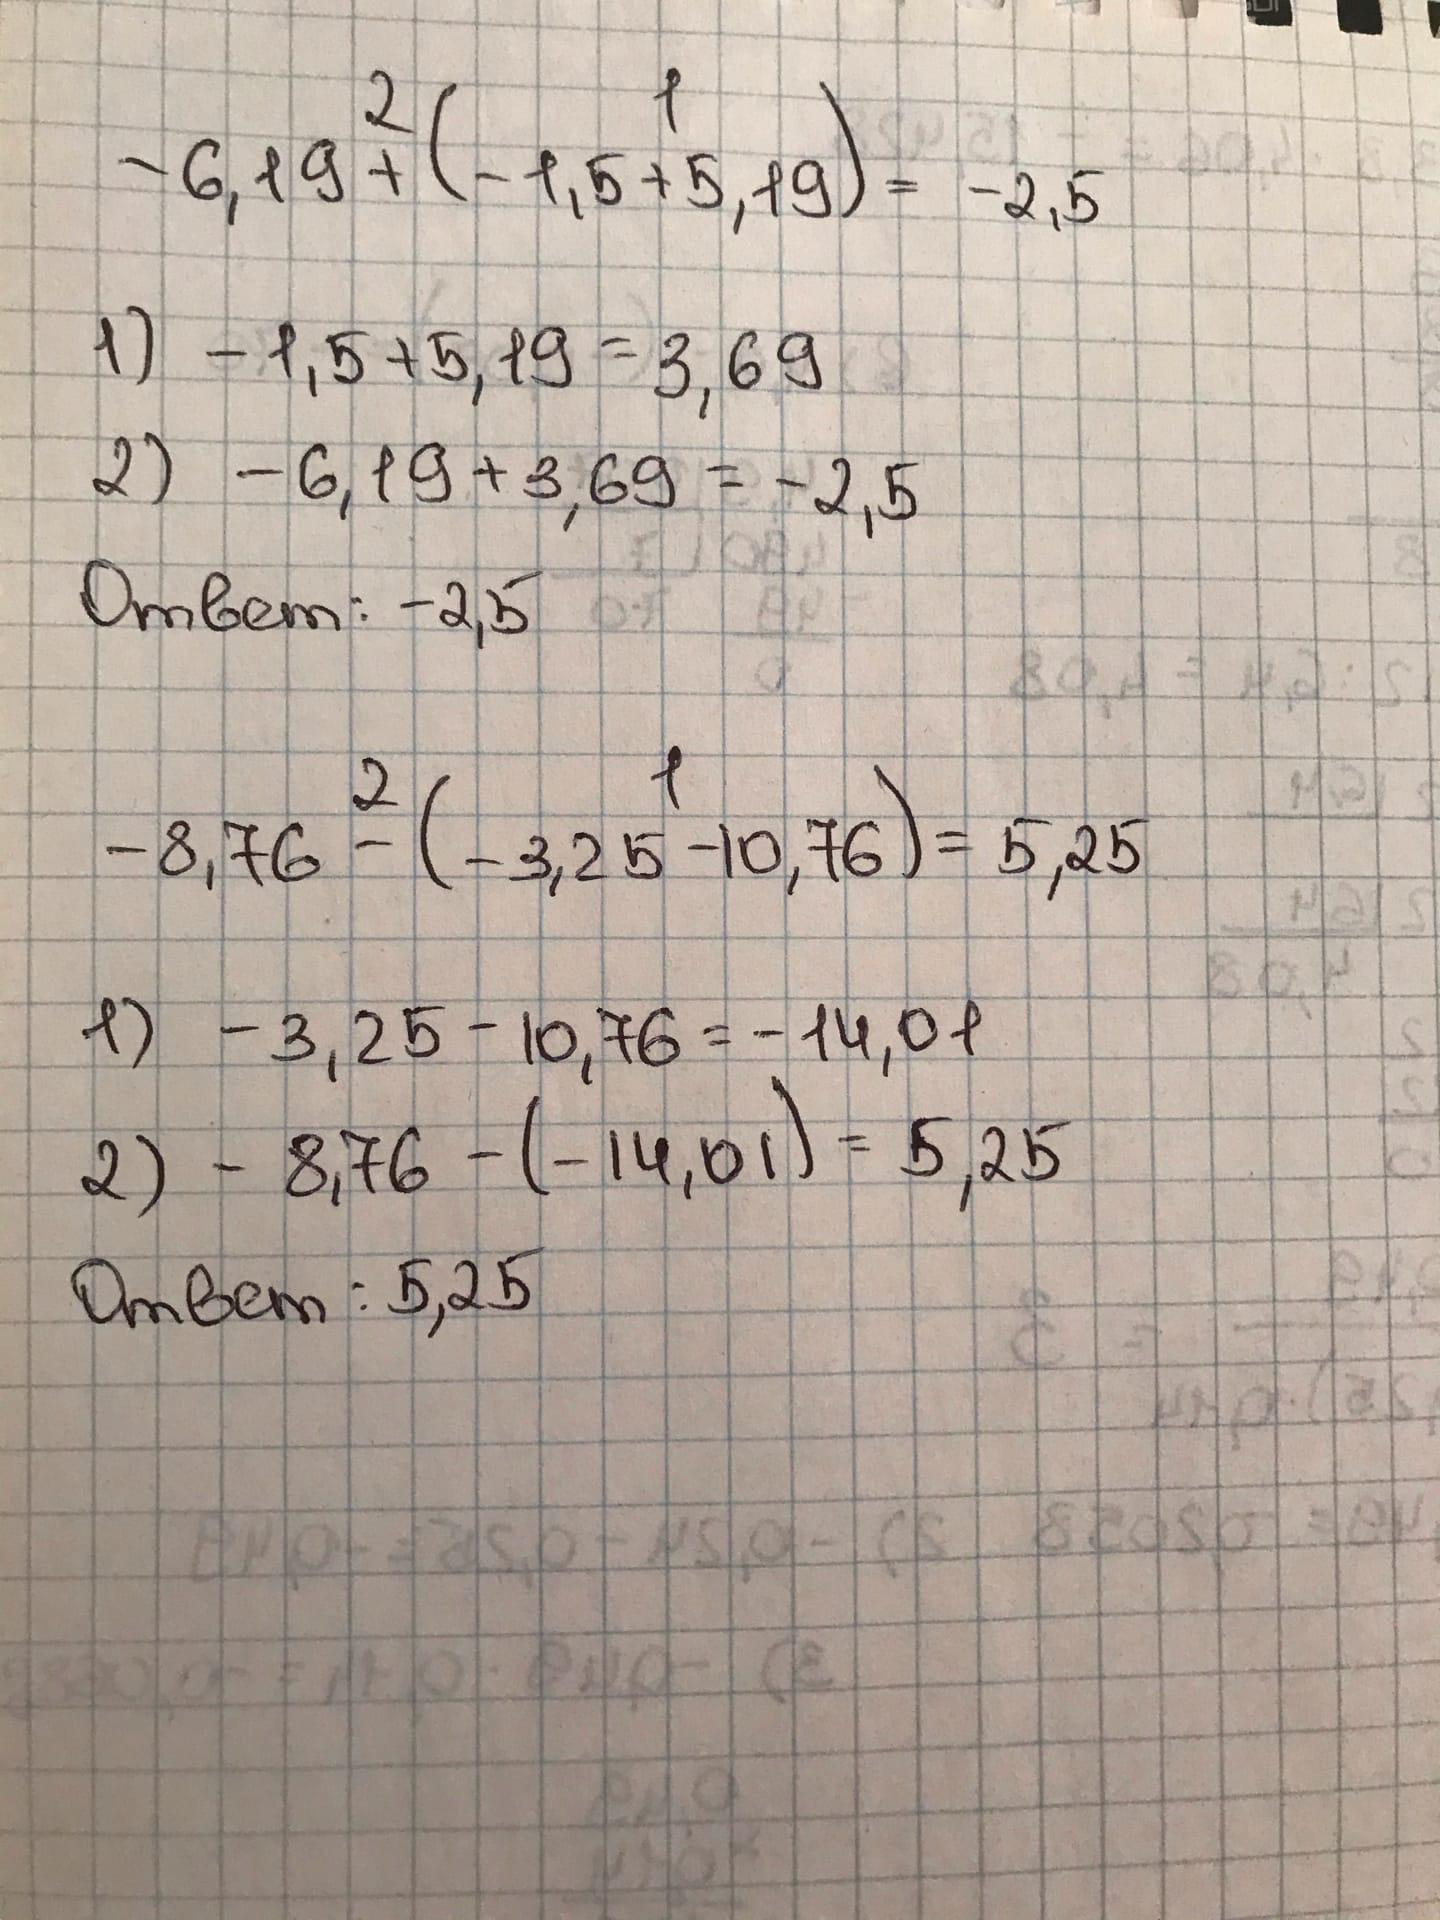 2 1
-6,19+(-1,5+5,19)= -2,5
1) -1,5+5,19=3,69
2) -6,19+3,69=-2,5
Ответ: -2,5
2 1
-8,76-(-3,25-10,76)=5,25
1) -3,25-10,76=-14,01
2) -8,76-(-14,01)=5,25
Ответ: 5,25